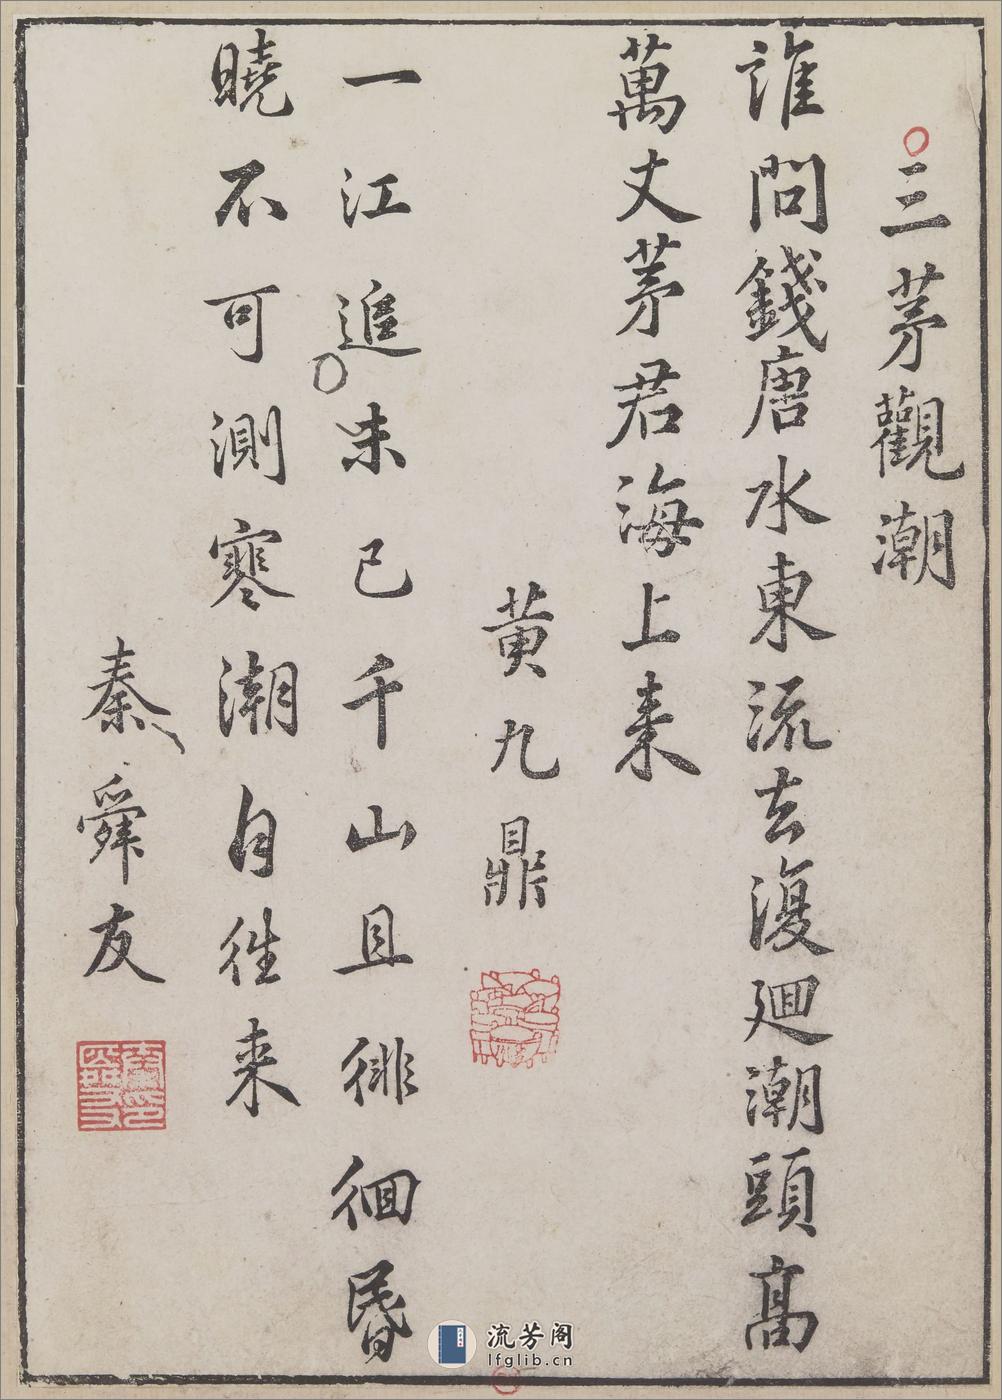 三茅觀潮
誰問錢唐水東流去復廻潮頭高
萬丈茅君海上来
黃九鼎
一江追未已千山且徘徊昬
曉不可測寒潮自徃来
秦舜友
流芳阁
lfglib.cn